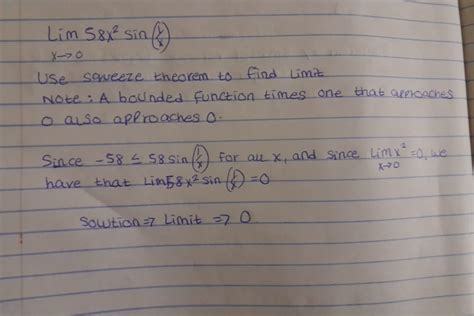 Lim 58x² sin(1/x)
x→0
Use squeeze theorem to find Limit
Note: A bounded function times one that approaches
0 also approaches 0.
Since -58 ≤ 58 sin(1/x) for all x, and since Lim x² = 0, we
x→0
have that Lim 58x² sin(1/x) = 0
Solution ⇒ Limit ⇒ 0